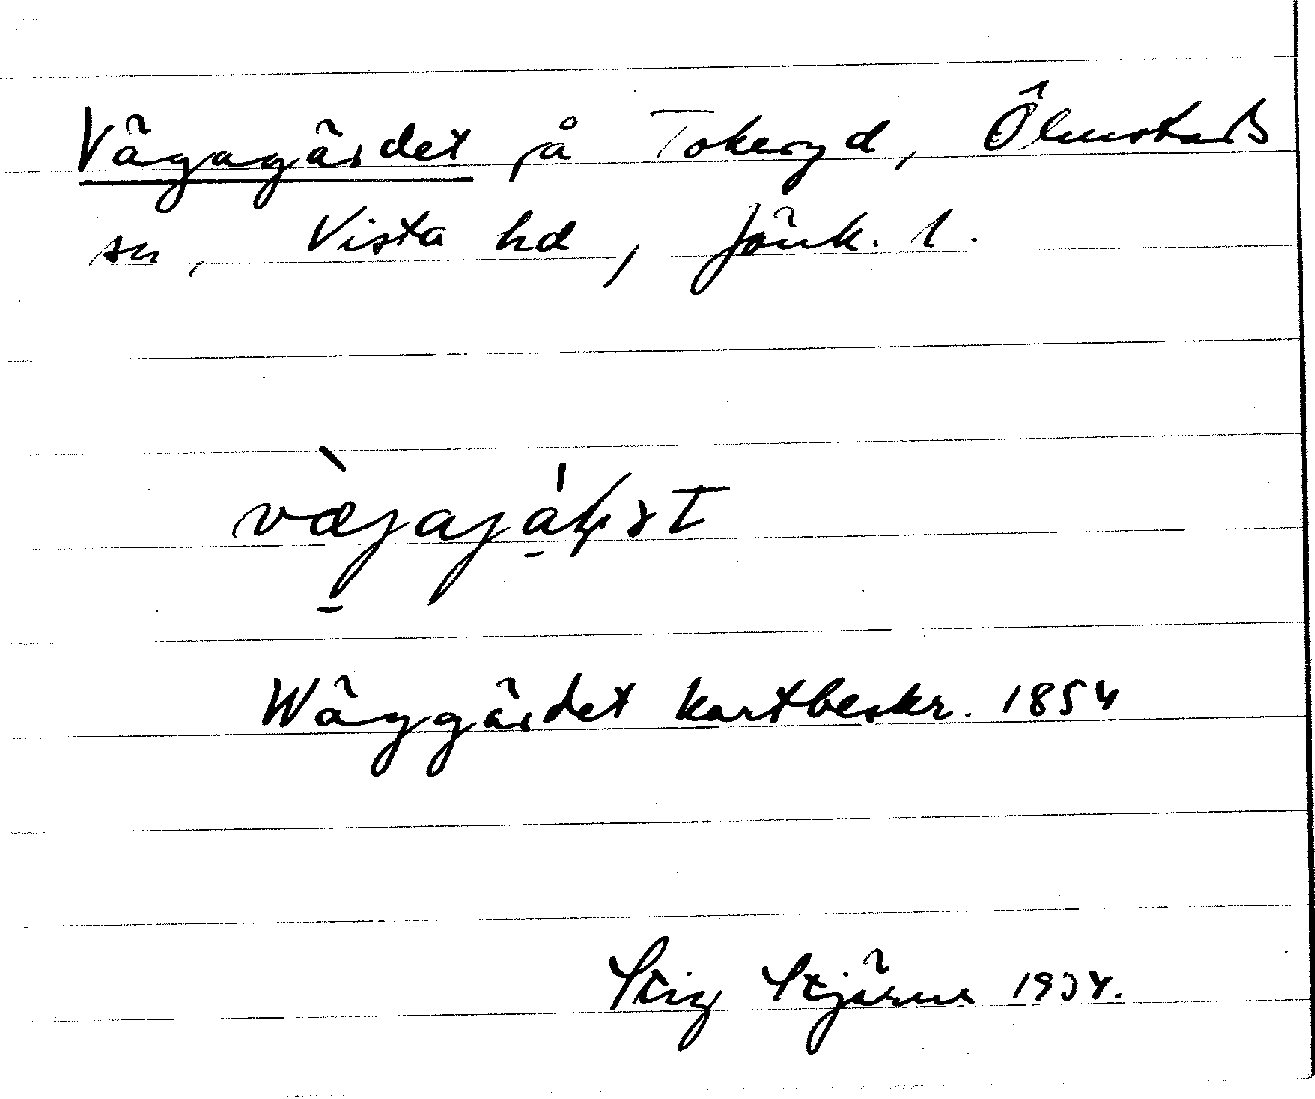 Vägagärdet på Tokeryd, Ölmstads
sn, Vista hd, Jönk. l.
Wäggärdet kartbeskr. 1854
Stig Stjärne 1934.